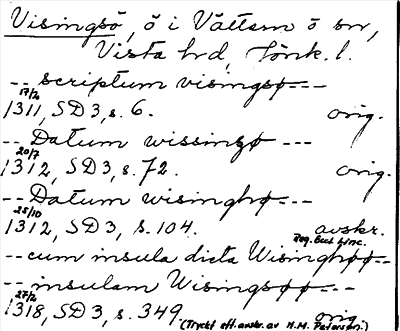 Visingsö, ö i Vättern ö om,
Vista hrd, Jönk. l.
-- scriptum visingsø---
17/2
1311, SD 3, s. 6. orig.
-- Datum wissingø ---
20/7
1312, SD 3, s. 72. orig.
-- Datum wisinghø---
25/10
1312, SD 3, s. 104. avskr.
Reg. Eccl. Linc.
--cum insula dicta Wisinghøø--
-- insulam Wisingsøø---
27/2
1318, SD 3, s. 349. orig.
(Tryckt eft. avskr. av H.M. Peterson.)